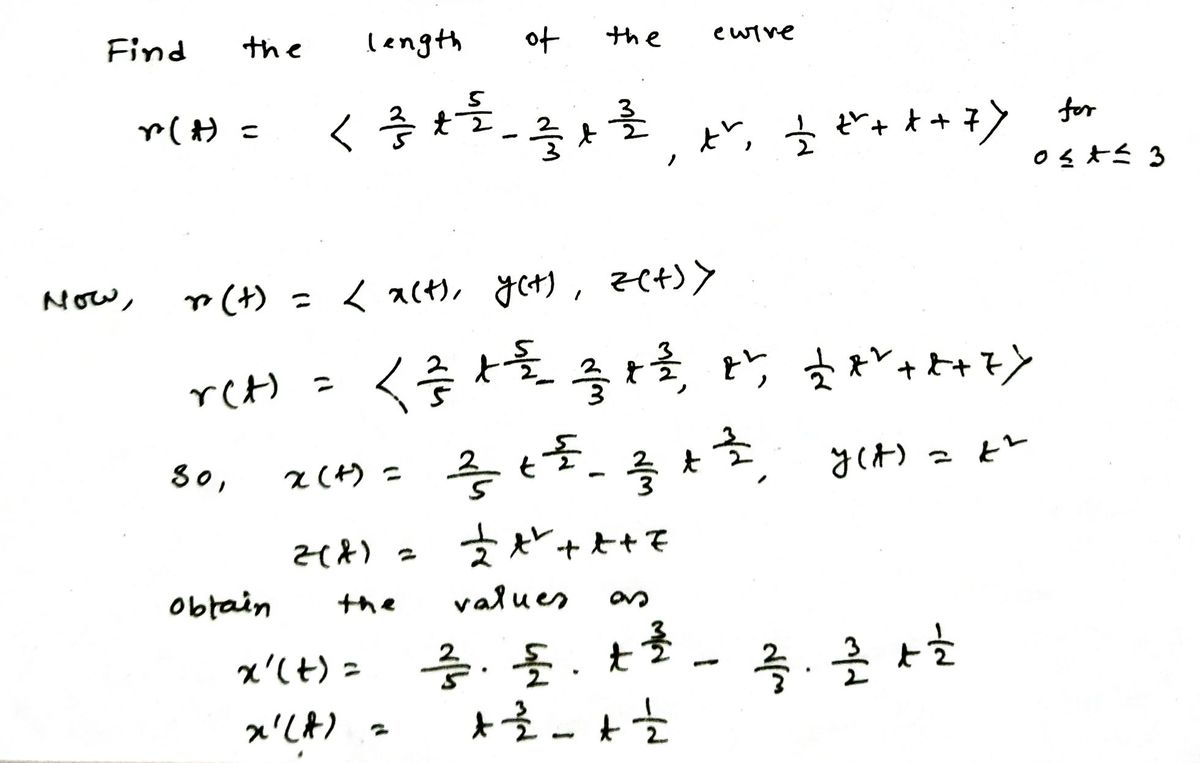 Find the length of the curve
r(t) = < 2/5 t^5/2 - 2/3 t^3/2, t^2, 1/2 t^2 + t + 7> for
0 ≤ t ≤ 3
Now, r(t) = < x(t), y(t), z(t)>
r(t) = < 2/5 t^5/2 - 2/3 t^3/2, t^2, 1/2 t^2 + t + 7>
So, x(t) = 2/5 t^5/2 - 2/3 t^3/2, y(t) = t^2
z(t) = 1/2 t^2 + t + 7
obtain the values as
x'(t) = 2/5 . 5/2 . t^3/2 - 2/3 . 3/2 t^1/2
x'(t) = t^3/2 - t^1/2